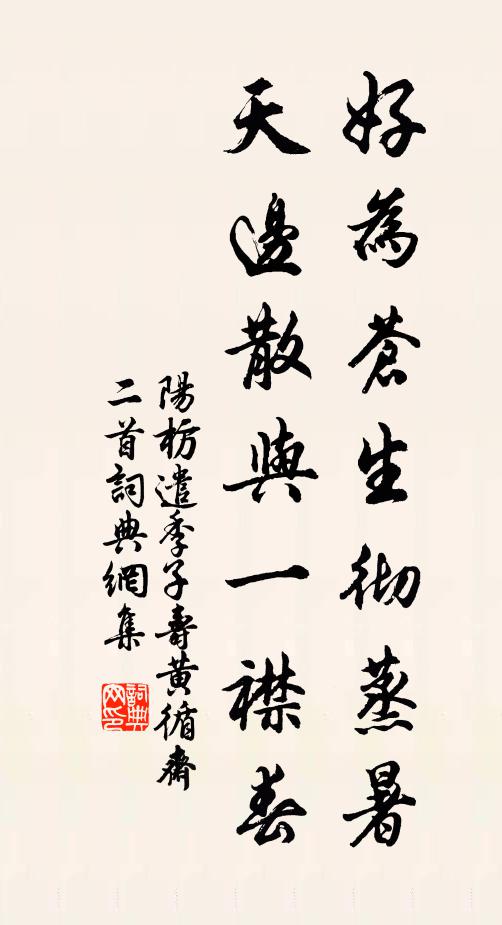 好為蒼生彻蒸暑
天邊散與一襟春
陽枋遣季子壽黄循齋
二首詞典網集
詞典网印